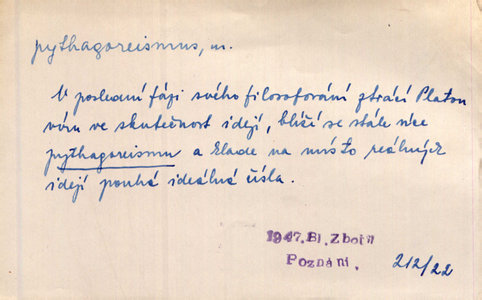 pythagoreismus, m.
V poslední fázi svého filosofování ztrácí Platon
víru ve skutečnost idejí, blíží se stále více
pythagoreismu a klade na místo reálných
idejí pouhá ideálná čísla.
1947. Bl. Zbořil
Poznání.
212/22